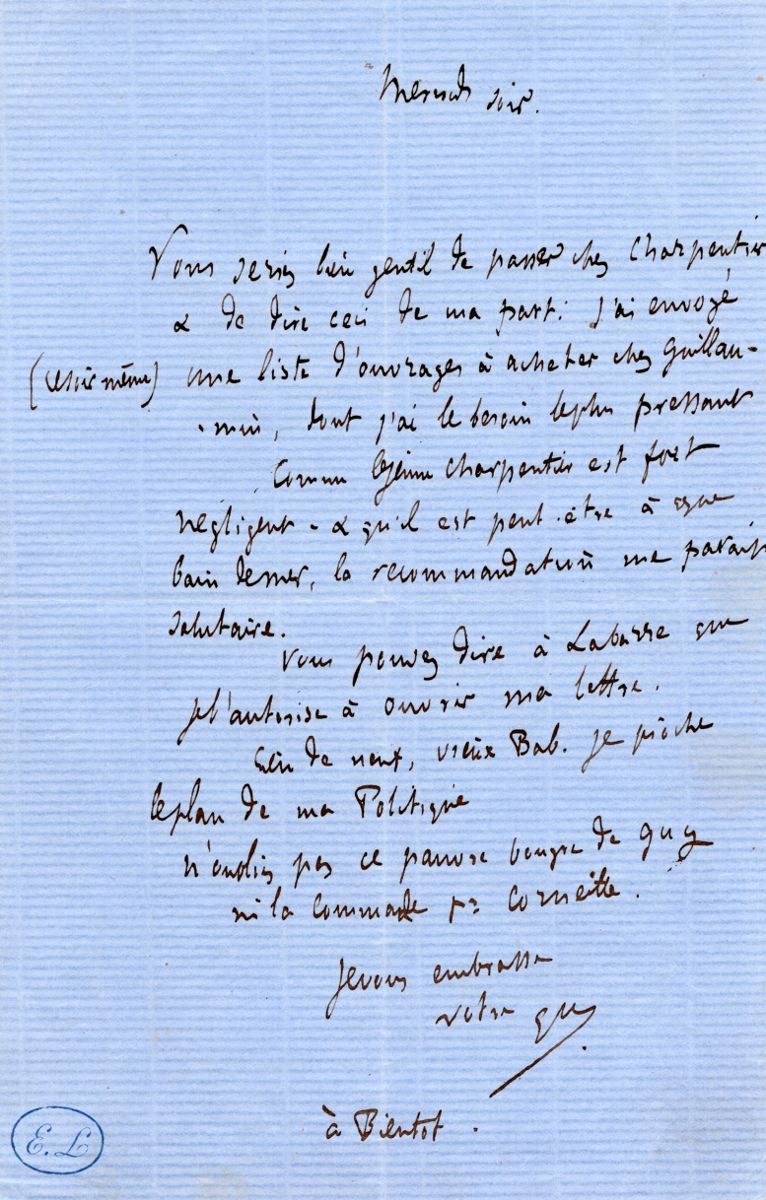 Mercredi soir.
Vous seriez bien gentil de passer chez Charpentier
& de dire ceci de ma part : j'ai envoyé
(ce soir même) une liste d'ouvrages à acheter chez Guillau-
-min, dont j'ai le besoin le plus pressant
Comme le jeune Charpentier est fort
négligent - & qu'il est peut-être à
bain de mer, la recommandation me paraît
salutaire.
Vous pouvez dire à Labarre que
je l'autorise à ouvrir ma lettre.
Rien de neuf, vieux Bab. je pioche
le plan de ma Politique
n'oubliez pas ce pauvre bougre de Guy
ni la commande pr
Je vous embrasse
votre Guy
à Bientot.
E. L